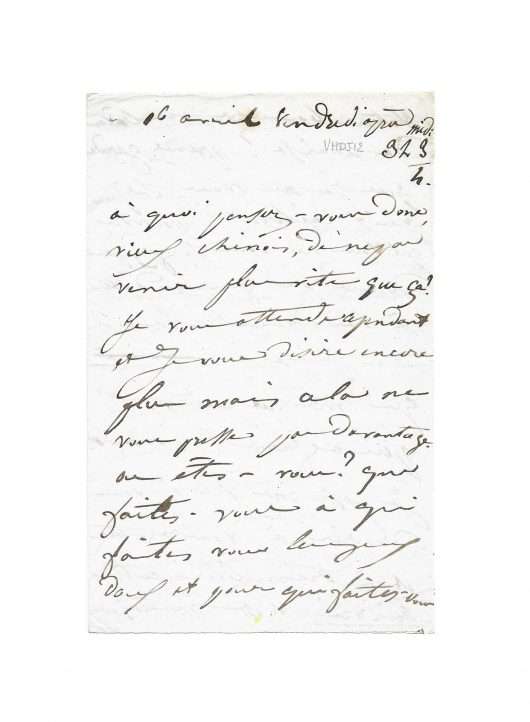 16 avril vendredi après midi
VHDJ12
3h 3/4.
à quoi pensez-vous donc,
vieux chinois, de ne pas
venir plus vite que ça?
Je vous attends cependant
et Je vous désire encore
plus mais cela ne
vous presse pas davantage.
où êtes-vous? que
faites-vous à qui
faites vous les yeux
doux et pour qui faites-vous